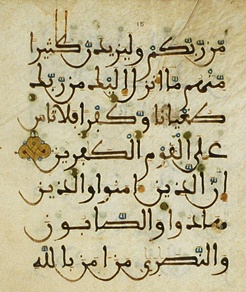 15
من ربكم وليزيدن كثيرا
منهم ما انزل اليك من ربك
طغيانا وكفرا فلا تاس
على القوم الكفرين
ان الذين امنوا والذين
هادوا والصابون
والنصرى من امن بالله